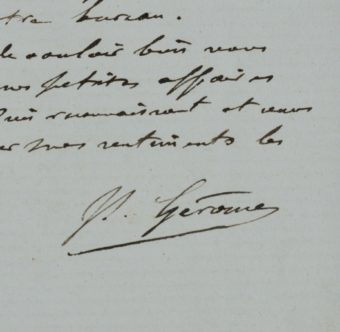 tre bureau.
de vouloir bien vous
nos petites affaires
suis reconnaissant et vous
er mes sentiments les
J. L. Gérome